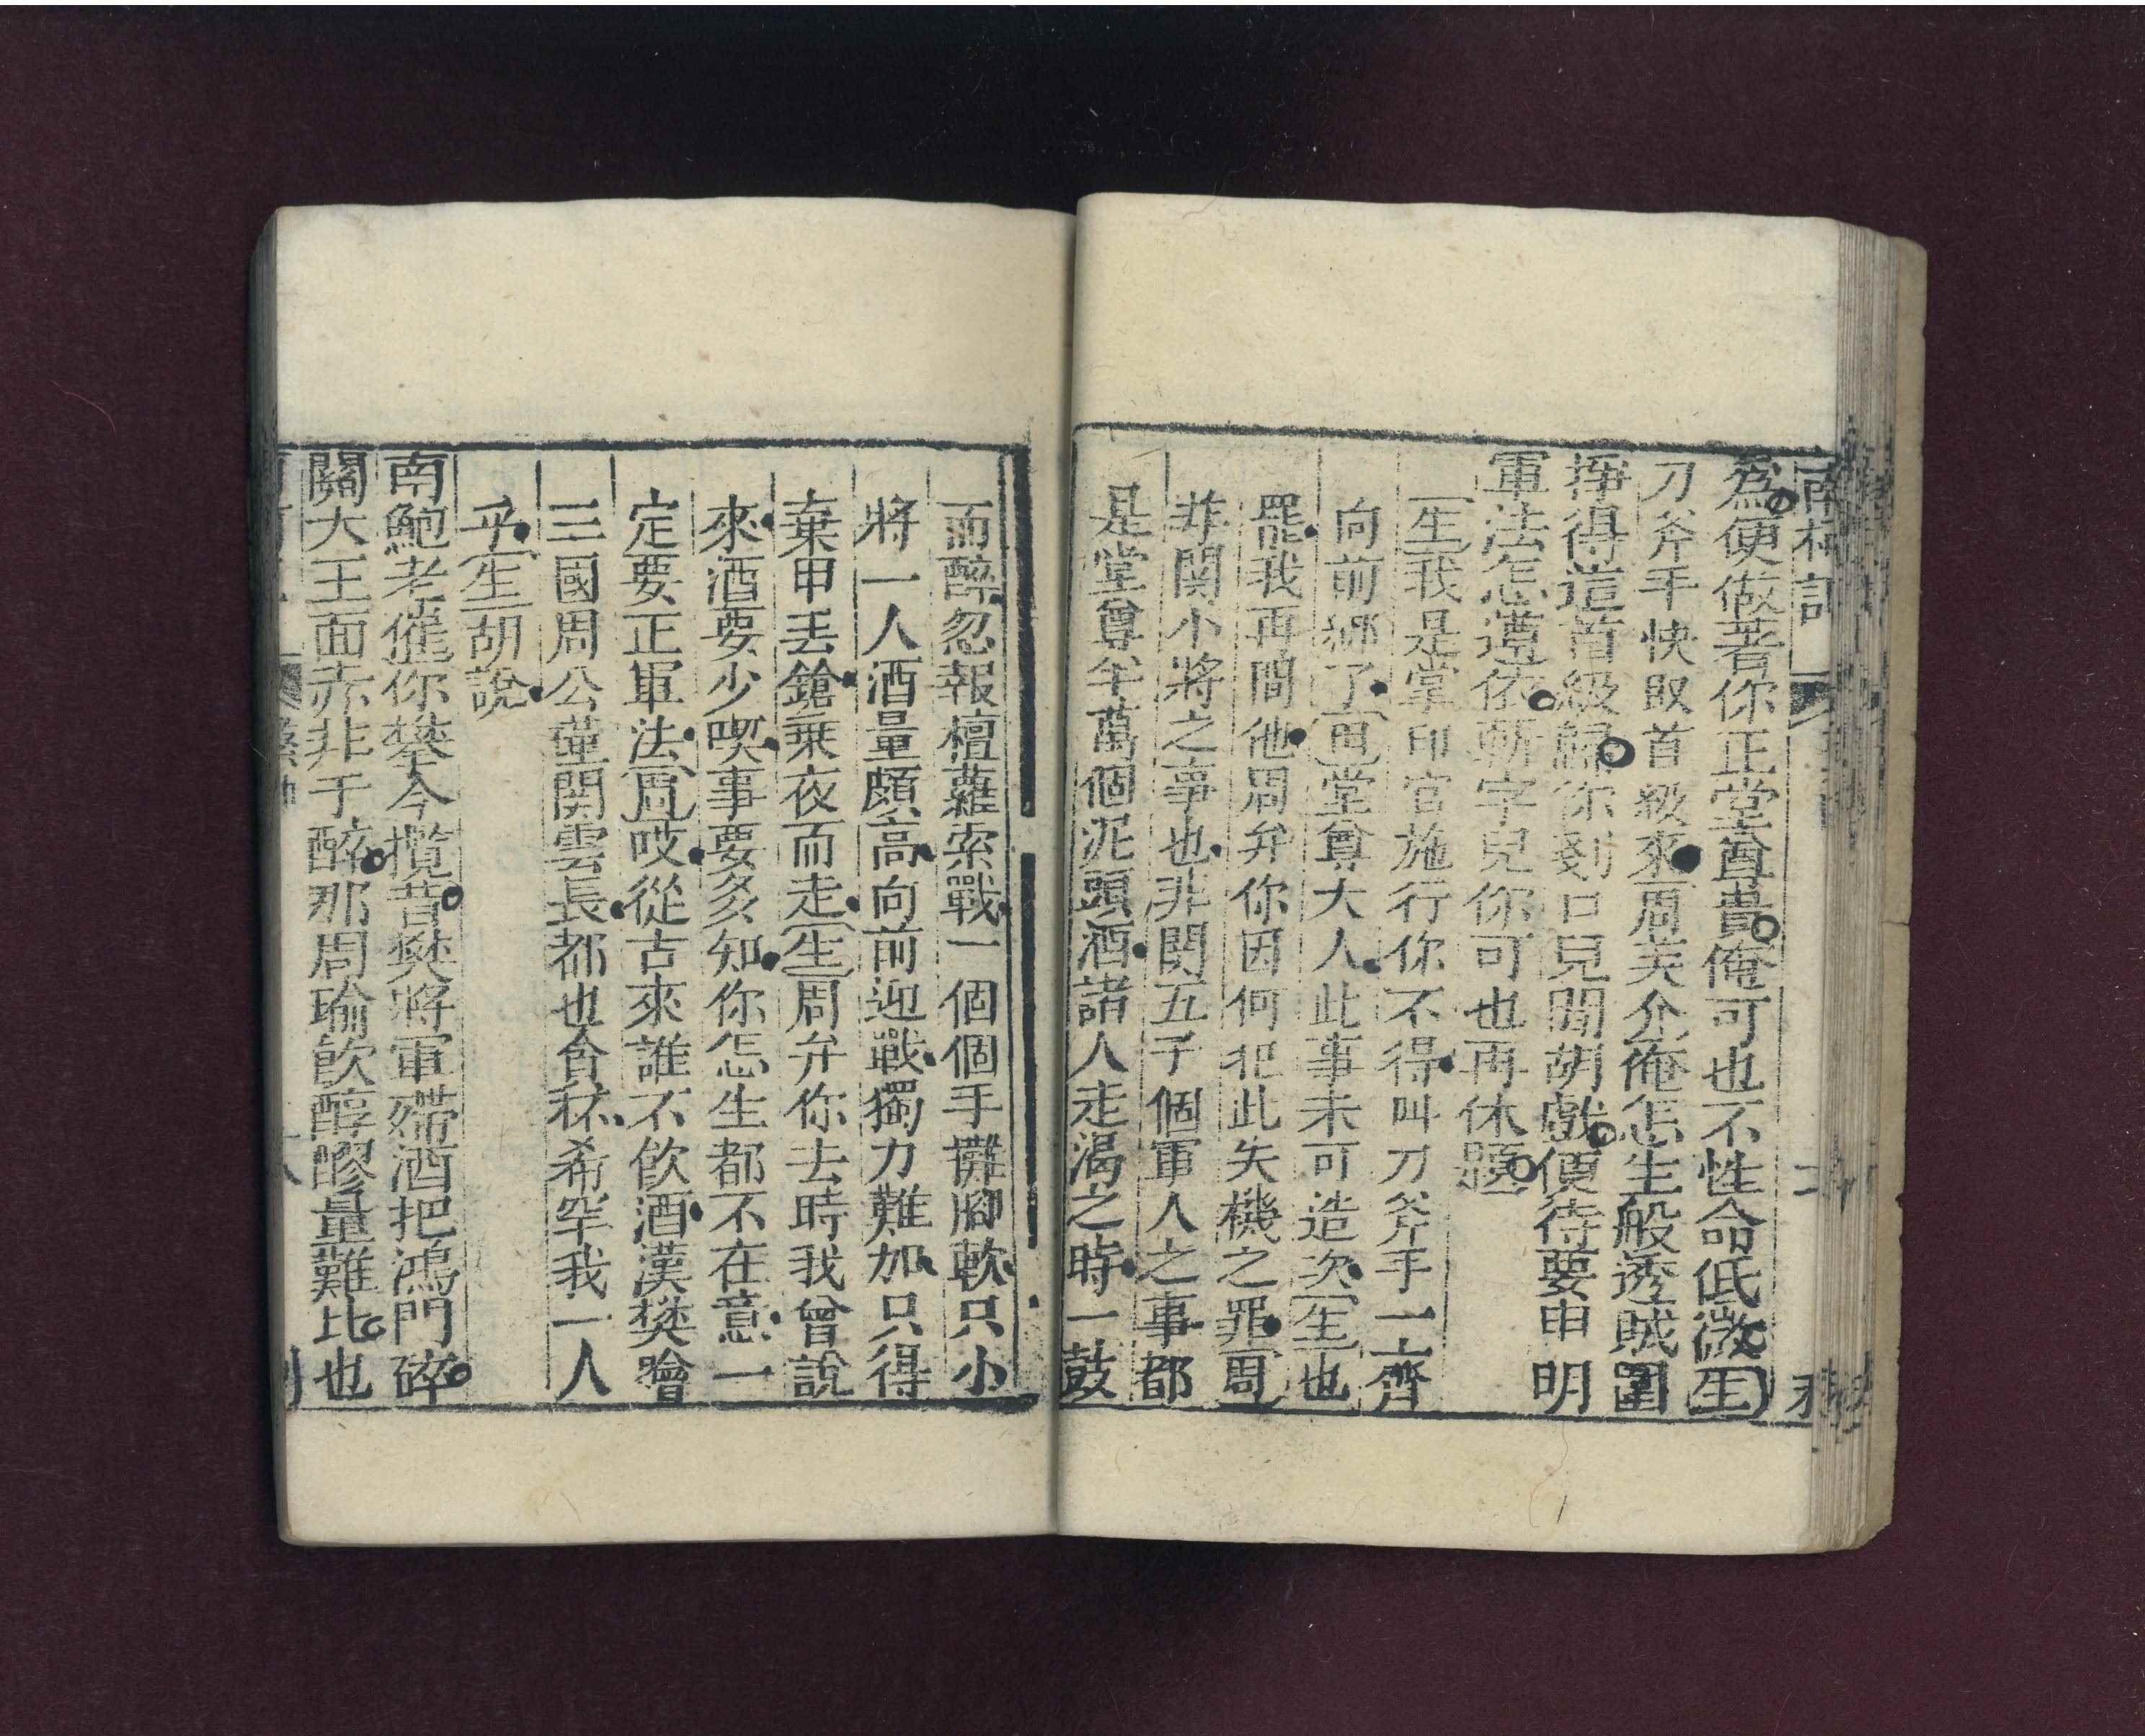 南柯記
為便做著你正堂尊貴俺可也不性命低微生
刀斧手快取首級來周笑介俺怎生般透賊圍
掙得這首級歸你剗口兒閒胡戲便待要申明
軍法怎遭依斬字兒你可也再休題
生我是掌印官施行你不得叫刀斧手一齊
向前綁了田堂尊大人此事未可造次生也
罷我再問他周弁你因何犯此失機之罪周
非關小將之事也非関五千個軍人之事都
是堂尊半萬個泥頭酒諸人走渴之時一鼓
而醉忽報檀蘿索戰一個個手攤腳軟只小
將一人酒量頗高向前迎戰獨力難加只得
棄甲丟鎗乗夜而走生周弁你去時我曾說
來酒要少喫事要多知你怎生都不在意一
定要正軍法周吱從古來誰不飲酒漢樊噲
三國周公瑾関雲長都也貪杯希罕我一人
乎生胡說
南鮑老催你攀今攬昔樊將軍殢酒把鴻門碎
關大王面赤非于醉那周瑜飲醇醪量難比也